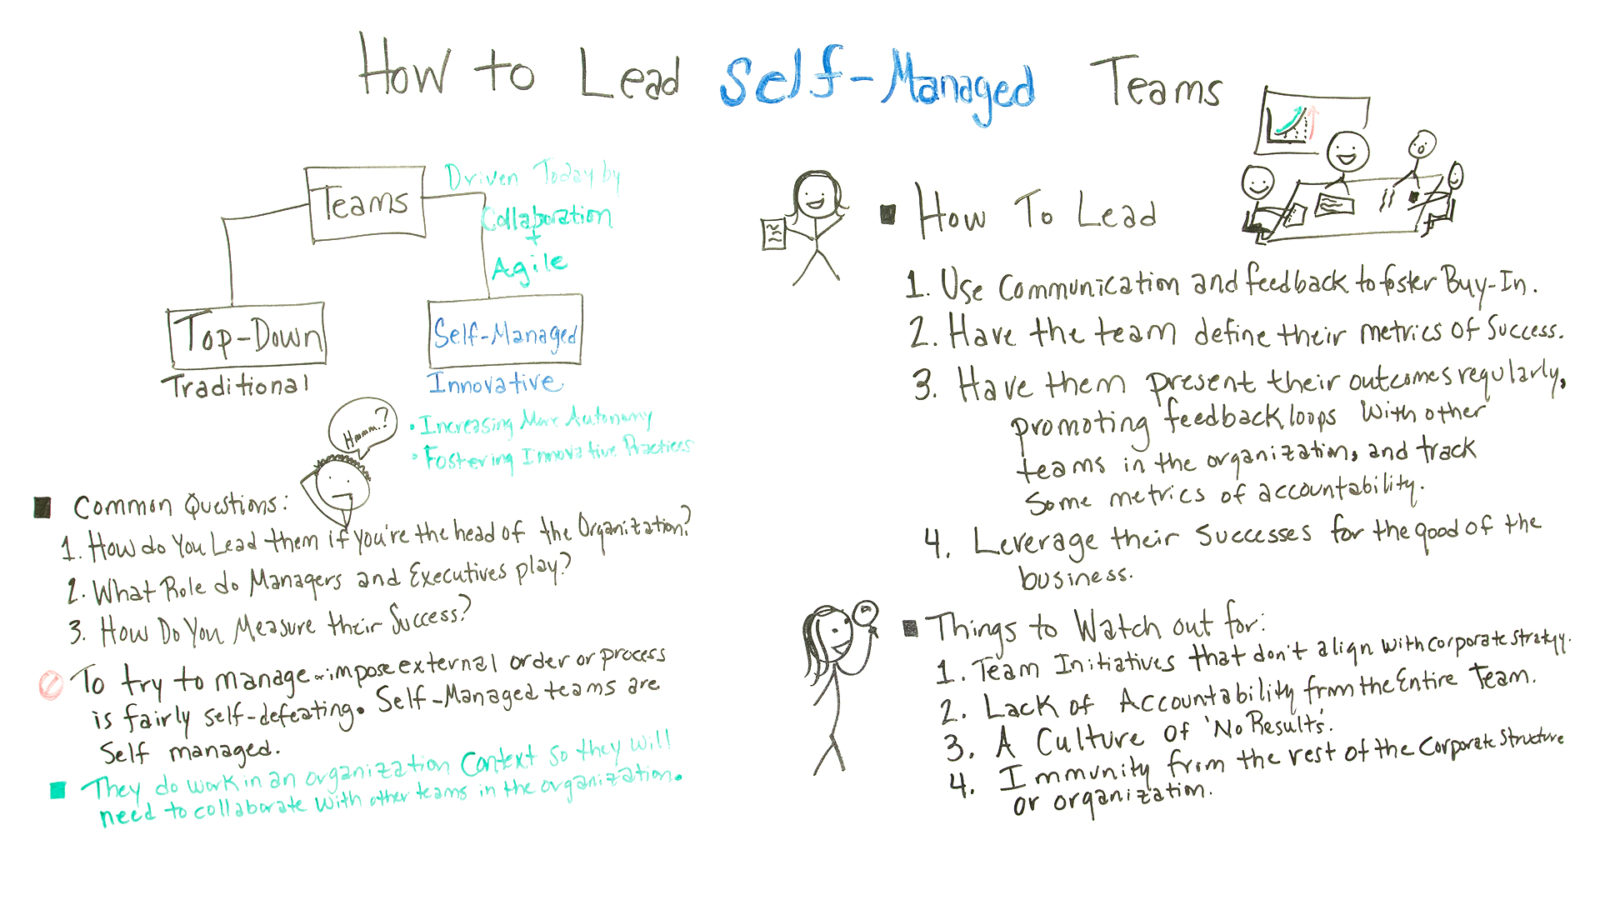 How to Lead Self-Managed Teams
Teams
Driven Today by
Collaboration
+
Agile
Top-Down
Traditional
Self-Managed
Innovative
• Increasing More Autonomy
• Fostering Innovative Practices
Hmmm..?
Common Questions:
1. How do You Lead them if you're the head of the Organization?
2. What Role do Managers and Executives play?
3. How Do You Measure their Success?
To try to manage or impose external order or process
is fairly self-defeating. Self-Managed teams are
Self managed.
They do work in an organization Context so they will
need to collaborate with other teams in the organization.
How To Lead
1. Use Communication and feedback to foster Buy-In.
2. Have the team define their metrics of Success.
3. Have them present their outcomes regularly,
promoting feedback loops with other
teams in the organization, and track
Some metrics of accountability.
4. Leverage their Successes for the good of the
business.
Things to Watch out for:
1. Team Initiatives that don't align with corporate strategy.
2. Lack of Accountability from the Entire Team.
3. A Culture of 'No Results'.
4. Immunity from the rest of the Corporate Structure
or organization.